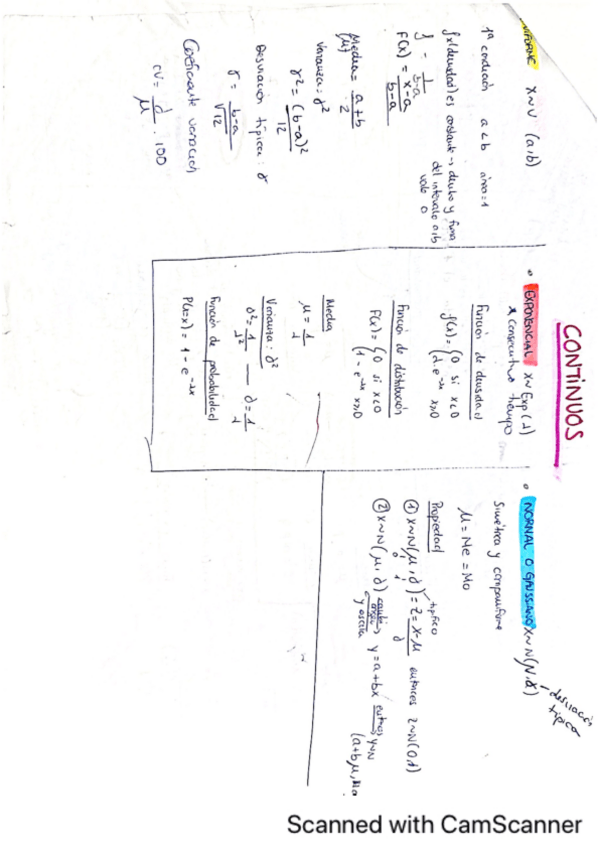 CONTINUOS
UNIFORME X~U (a,b)
1ª condición a<b área=1
f(x)(densidad) es constante → dentro y fuera
del intervalo a,b
vale 0
f = 1/(b-a)
F(x) = (x-a)/(b-a)
Media = (a+b)/2
(μ)
Varianza: σ²
σ² = (b-a)²/12
Desviación típica: σ
σ = (b-a)/√12
Coeficiente variación
CV = σ/μ · 100
• EXPONENCIAL X~Exp(λ)
* consecutivo tiempo
Función de densidad
f(x) = {0 si x<0
{λ·e^-λx x≥0
Función de distribución
F(x) = {0 si x<0
{1 - e^-λx x≥0
Media
μ = 1/λ
Varianza: σ²
σ² = 1/λ² — σ = 1/λ
Función de probabilidad
P(x≤x) = 1 - e^-λx
• NORMAL O GAUSSIANO X~N(μ,σ)
desviación
típica
Simétrica y
μ = Me = Mo
Propiedad
① X~N(μ,σ) = Z = (X-μ)/σ entonces Z~N(0,1)
0 1
típico
② X~N(μ,σ) y = a+bx entonces y~N
y escala
Scanned with CamScanner